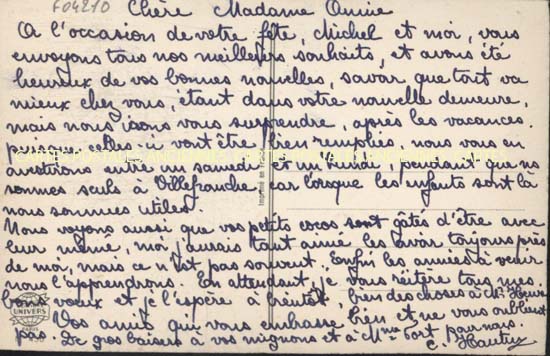 F04210
Chère Madame Annie
A l'occasion de votre fête, Michel et moi, vous
envoyons tous nos meilleurs souhaits, et avons été
heureux de vos bonnes nouvelles, savoir que tout va
mieux chez vous, étant dans votre nouvelle demeure,
mais nous irons vous surprendre, après les vacances.
puisque celles-ci vont être bien remplies, nous vous en
avertirons entre un samedi et un lundi, pendant que ns
sommes seuls à Villefranche, car lorsque les enfants sont là
nous sommes utiles.
Nous voyons aussi que vos petits cocos sont gâtés d'être avec
leur mémé, moi j'aurais tant aimé les avoir toujours près
de moi, mais ce n'est pas souvent. Enfin les années à venir
nous l'apprendrons. En attendant, je vous réitère tous mes
bons voeux et je l'espère à bientôt, bien des choses à Mr
Vos amis qui vous embrasse bien et ne vous oublient
pas. De gros baisers à vos mignons et à Mme fort pour nous.
C.
Imprimé en
UNIVERS